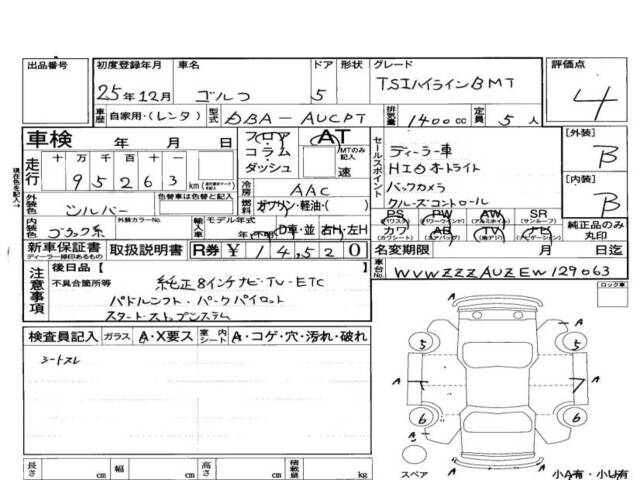 出品番号 初度登録年月 車名 ドア 形状 グレード 評価点
25年12月 ゴルフ 5 TSIハイラインBMT 4
車歴 自家用・(レンタ) 型式 DBA-AUCPT 排気量 1400cc 定員 5人
車検 年 月 日 フロア・コラム・ダッシュ AT MTのみ記入 速
走行 十 万 千 百 十 一
95263 km
冷房 AAC
外装色 シルバー 色替車は色替色 元色 燃料 ガソリン・軽油・( )
内装色 ブラック系 外装カラーNo. 輸入車 モデル年式 年(不明) D車・並 右H・左H
新車保証書 ディーラー捺印あるもの 取扱説明書 R券 ¥14,520
セールスポイント
ディーラー車
HIDオートライト
バックカメラ
クルーズコントロール
PS (パワステ) PW (パワーウインド) AW (アルミホイール) SR (サンルーフ)
カワ (カワシート) AB (エアバッグ) TV (地デジ) ナビ (ナビゲーション)
[外装] B
[内装] B
純正品のみ丸印
名変期限 月 日迄
車台No. WVWZZZAUZEW129063
現在色を記入→
注意事項 後日品【 】
不具合箇所等 純正8インチナビ・TV・ETC
パドルシフト・パークパイロット
スタート・ストップシステム
検査員記入 ガラス A・X要ス 室内シート A・コゲ・穴・汚れ・破れ
シートスレ
ロック車
A
5 5
A 7 7 A
6 6
A
スペア 小A有・小U有
長さ cm 幅 cm 高さ cm 積載量 kg